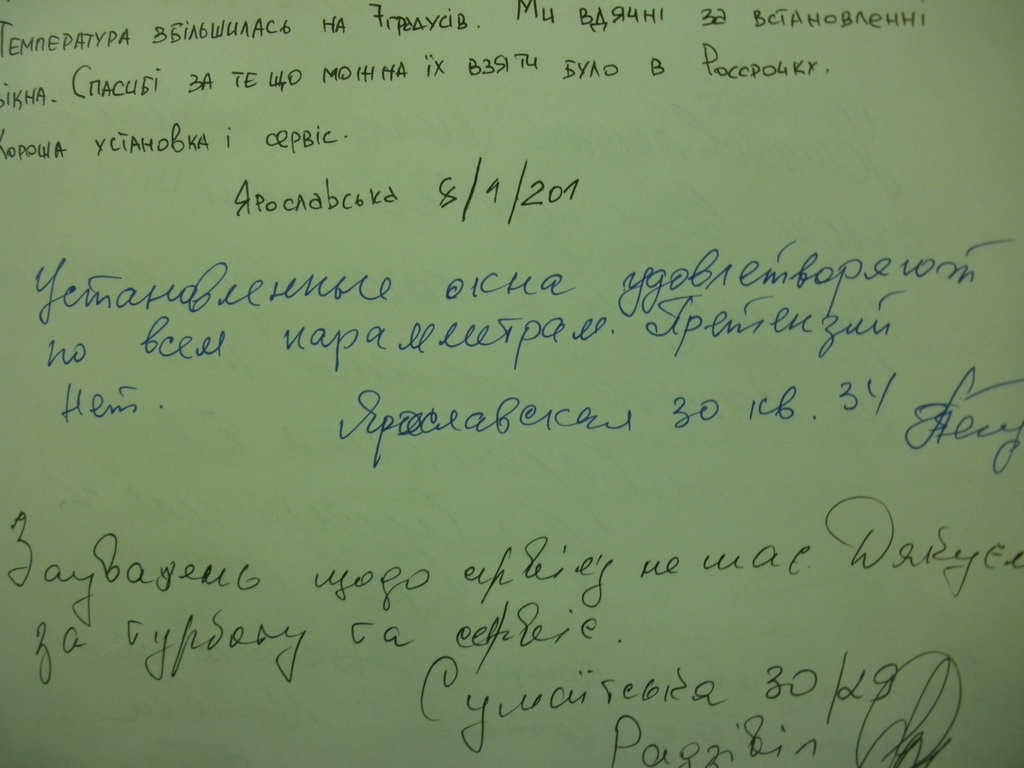 Температура збільшилась на 7градусів. Ми вдячні за встановленні
вікна. Спасибі за те що можна їх взяти було в Россрочку.
Хороша установка і сервіс.
Ярославська 8/1/201
Установленные окна удовлетворяют
по всем параметрам. Претензий
нет.
Ярославская 30 кв. 34
Зауважень щодо сервісу не має. Дякуєм
за турботу та сервіс.
Сумгаїтська 30/
Радзівіл